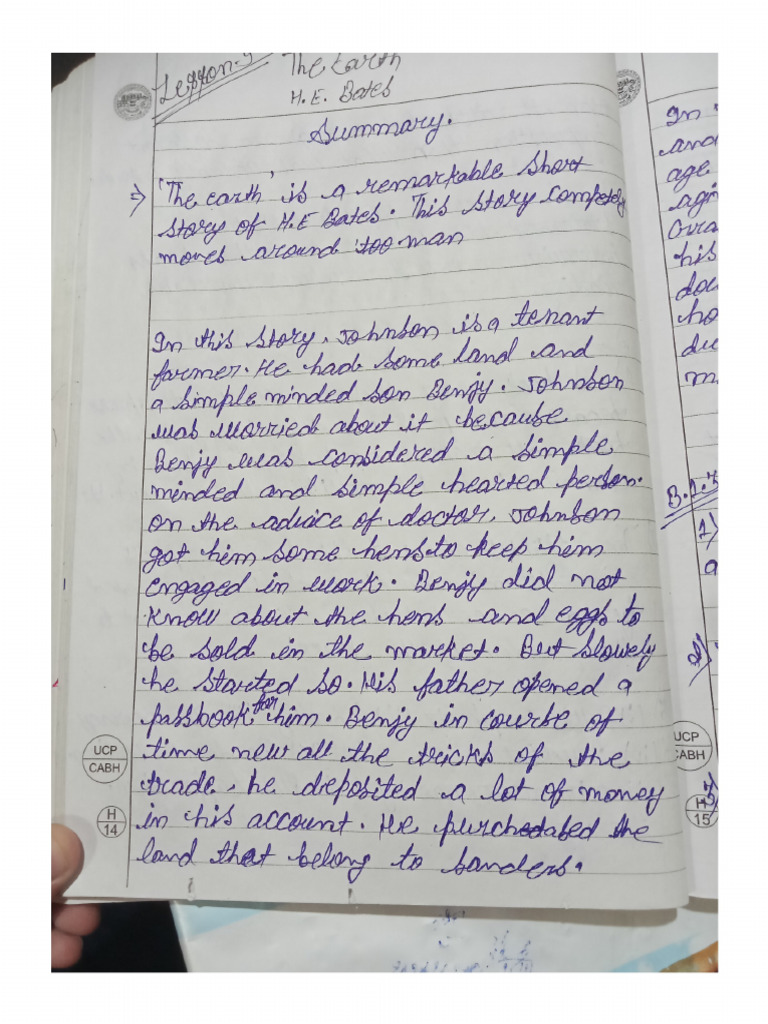 Lesson-5
The Earth
H.E. Bates
Summary.
⇒ 'The earth' is a remarkable short
story of H.E Bates. This story competely
moves around too man
In this story, Johnson is a tenant
farmer. He had some land and
a simple minded son Benjy. Johnson
was worried about it because
Benjy was considered a simple
minded and simple hearted person.
on the advice of doctor, Johnson
got him some hens to keep him
engaged in work. Benjy did not
know about the hens and eggs to
be sold in the market. But slowely
he started so. His father opened a
passbook for him. Benjy in course of
time new all the tricks of the
trade, he deposited a lot of money
in his account. He purchedased the
land that belong to sanders.
UCP
CABH
H
14
In
and
age
agr
his
doc
ho
du
m
B.1.
1)
a
2)
3)
UCP
CABH
H
15